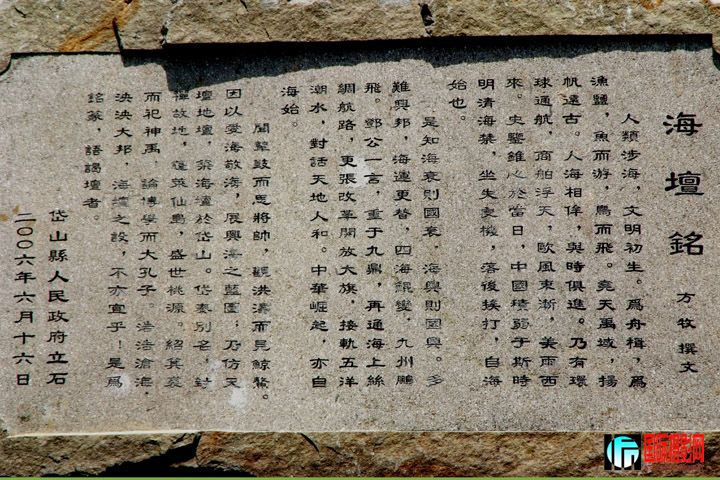 海壇銘
方牧撰文
人類涉海，文明初生。爲舟楫，爲
漁鹽，魚而游，鳥而飛。堯天禹域，揚
帆遠古。人海相侔，與時俱進。乃有環
球通航，商舶浮天，歐風東漸，美雨西
來。史鑒維心於當日，中國積弱于斯時
明清海禁，坐失變機，落後挨打，自海
始也。
是知海衰則國衰，海興則國興。多
難興邦，海運更替，四海龍變，九州鵬
飛。鄧公一言，重于九鼎，再通海上絲
綢航路，更張改革開放大旗，接軌五洋
潮水，對話天地人和。中華崛起，亦自
海始。
聞鼙鼓而思將帥，觀洪濤而見鯨鰲。
因以愛海敬海，展興海之藍圖；乃仿天
壇地壇，築海壇於岱山。岱泰別名，封
禪故地，蓬萊仙島，盛世桃源。紹箕裘
而祀神禹，論博學而大孔子。浩浩滄海，
泱泱大邦，海壇之設，不亦宜乎！是爲
銘篆，語謁壇者。
岱山縣人民政府立石
二〇〇六年六月十六日
国际摄影网